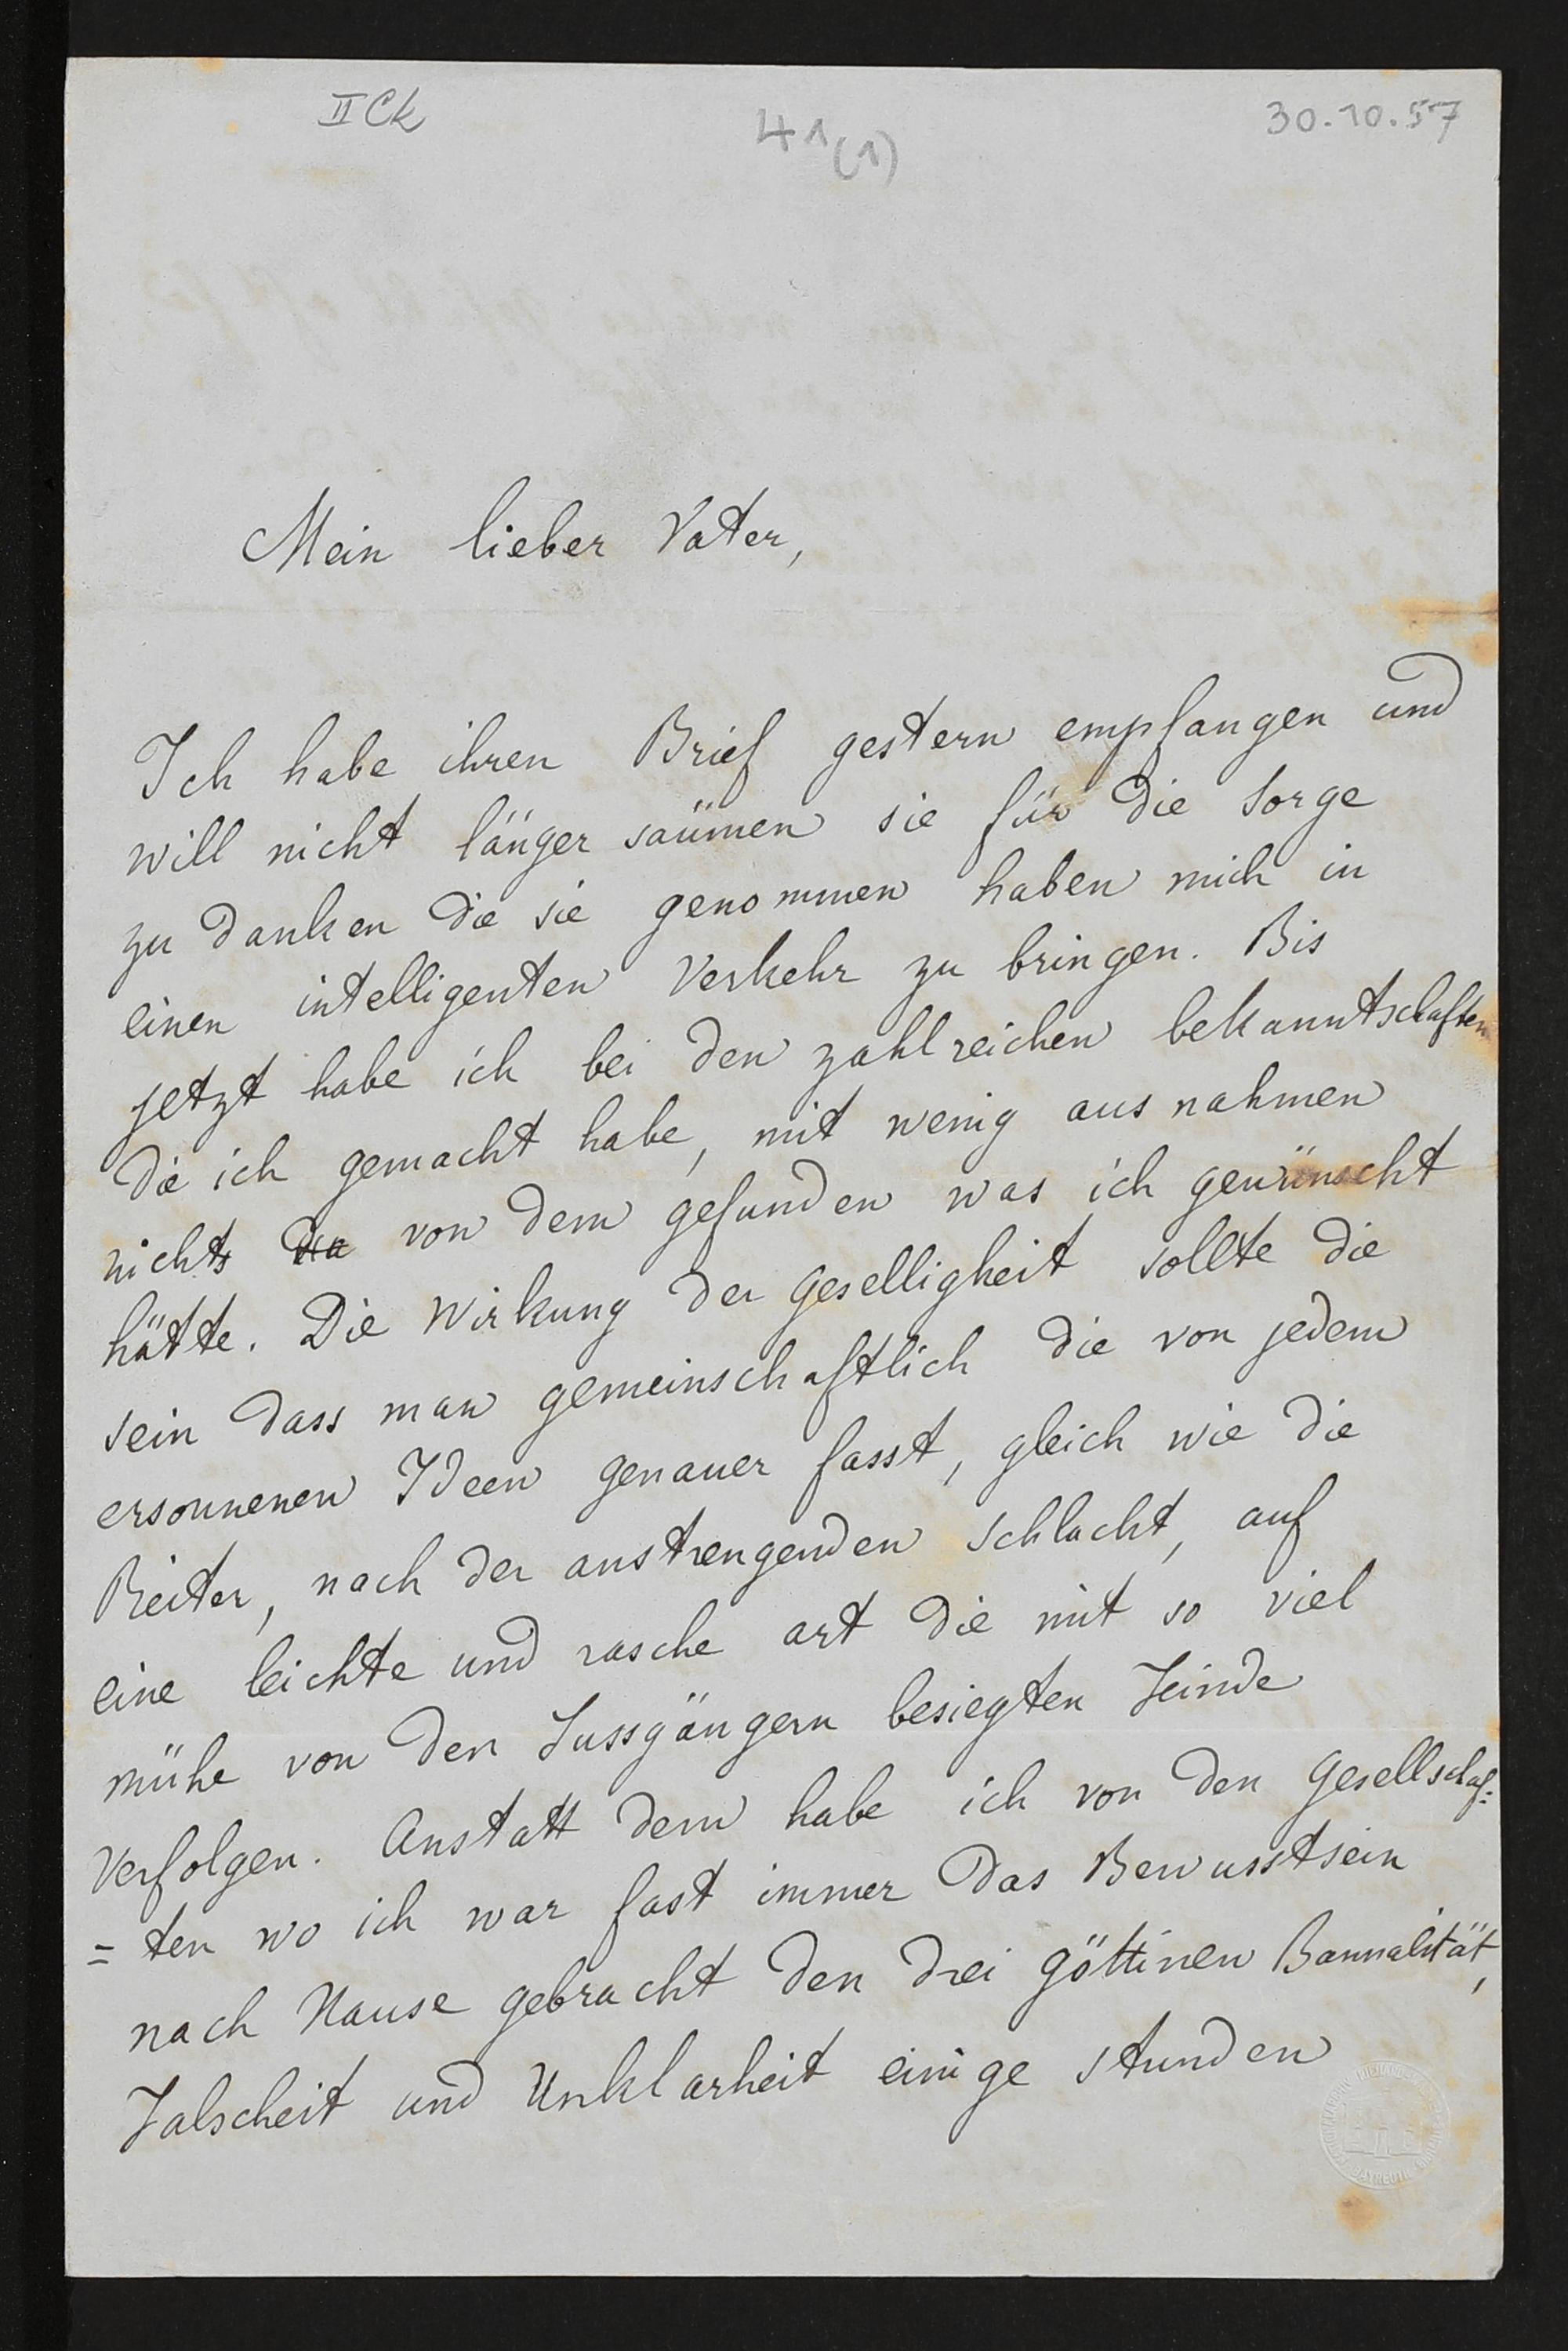 II Ck
41(1)
30.10.57
Mein lieber Vater,
Ich habe ihren Brief gestern empfangen und
will nicht länger saümen sie für die Sorge
zu danken die sie genommen haben mich in
einen intelligenten Verkehr zu bringen. Bis
jetzt habe ich bei den zahlreichen bekanntschaften
die ich gemacht habe, mit wenig ausnahmen
nichts von dem gefunden was ich gewünscht
hätte. Die Wirkung der Geselligkeit sollte die
sein dass man gemeinschaftlich die von jedem
ersonnenen Ideen genauer fasst, gleich wie die
Reiter, nach der anstrengenden Schlacht, auf
eine leichte und rasche art die mit so viel
mühe von den Fussgängern besiegten Feinde
verfolgen. Anstatt dem habe ich von den Gesellschaf=
=ten wo ich war fast immer das Bewusstsein
nach Hause gebracht den drei göttinen Bannalität,
Falscheit und Unklarheit einige Stunden